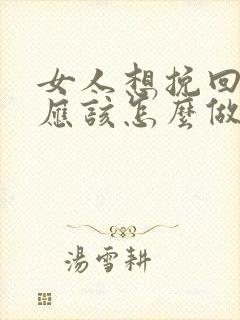 女人想挽回
應該怎麼做
湯雪耕